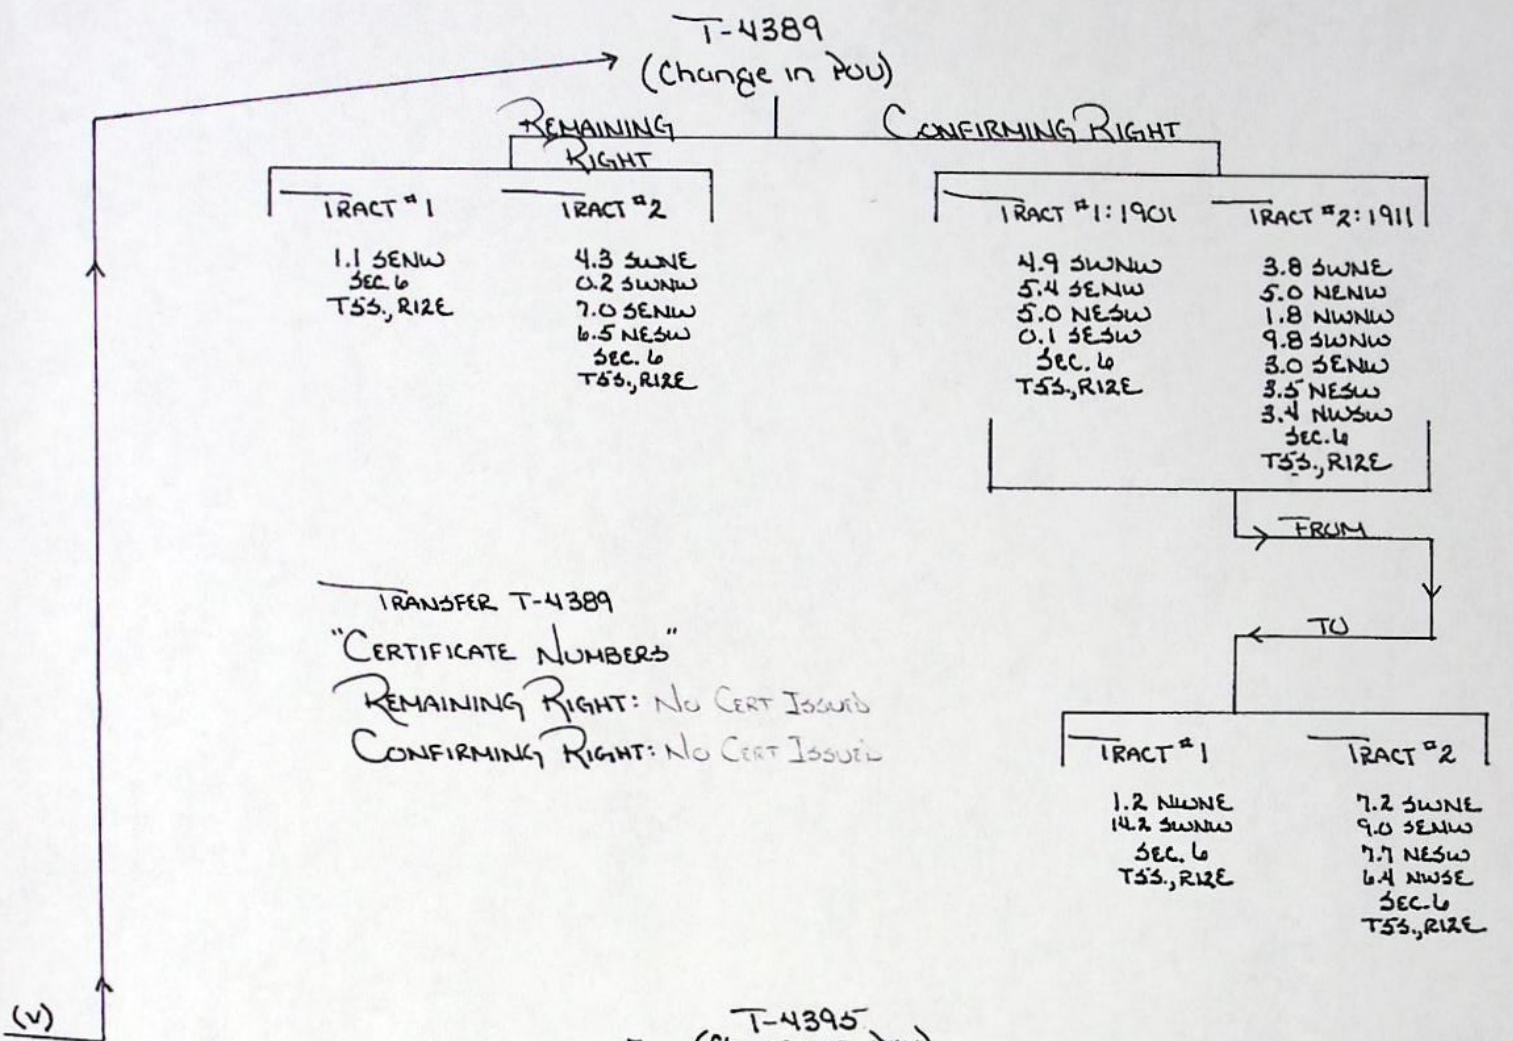 T-4389
(Change in POU)
REMAINING RIGHT
CONFIRMING RIGHT
TRACT #1
1.1 SENW
SEC. 6
T5S., R12E
TRACT #2
4.3 SWNE
0.2 SWNW
7.0 SENW
6.5 NESW
SEC. 6
T5S., R12E
TRACT #1: 1901
4.9 SWNW
5.4 SENW
5.0 NESW
0.1 SESW
SEC. 6
T5S., R12E
TRACT #2: 1911
3.8 SWNE
5.0 NENW
1.8 NWNW
9.8 SWNW
3.0 SENW
3.5 NESW
3.4 NWSW
SEC. 6
T5S., R12E
FROM
TO
TRANSFER T-4389
"CERTIFICATE NUMBERS"
REMAINING RIGHT: No CERT ISSUED
CONFIRMING RIGHT: No CERT ISSUED
TRACT #1
1.2 NWNE
14.2 SWNW
SEC. 6
T5S., R12E
TRACT #2
7.2 SWNE
9.0 SENW
7.7 NESW
6.4 NWSE
SEC. 6
T5S., R12E
(V)
T-4395